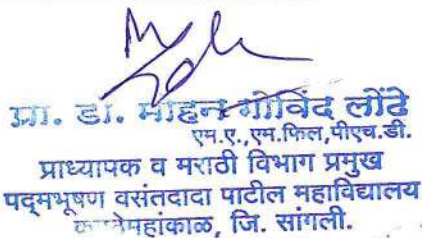 प्रा. डॉ. मोहन गोविंद लोंढे
एम.ए.,एम.फिल,पीएच.डी.
प्राध्यापक व मराठी विभाग प्रमुख
पद्मभूषण वसंतदादा पाटील महाविद्यालय
जि. सांगली.